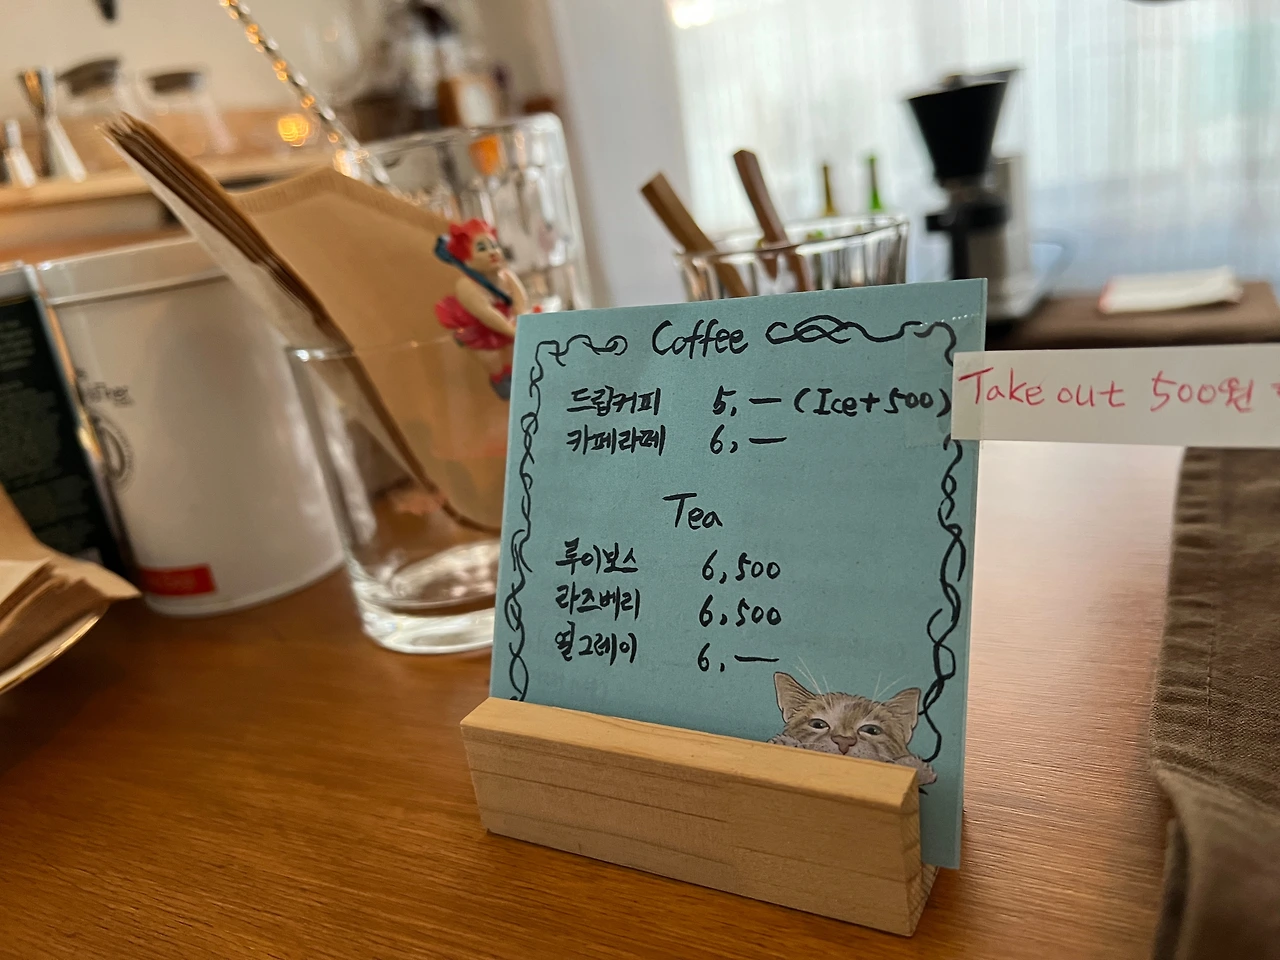 Coffee
드립커피 5,— (Ice+500)
카페라떼 6,—
Take out 500원
Tea
루이보스 6,500
라즈베리 6,500
얼그레이 6,—